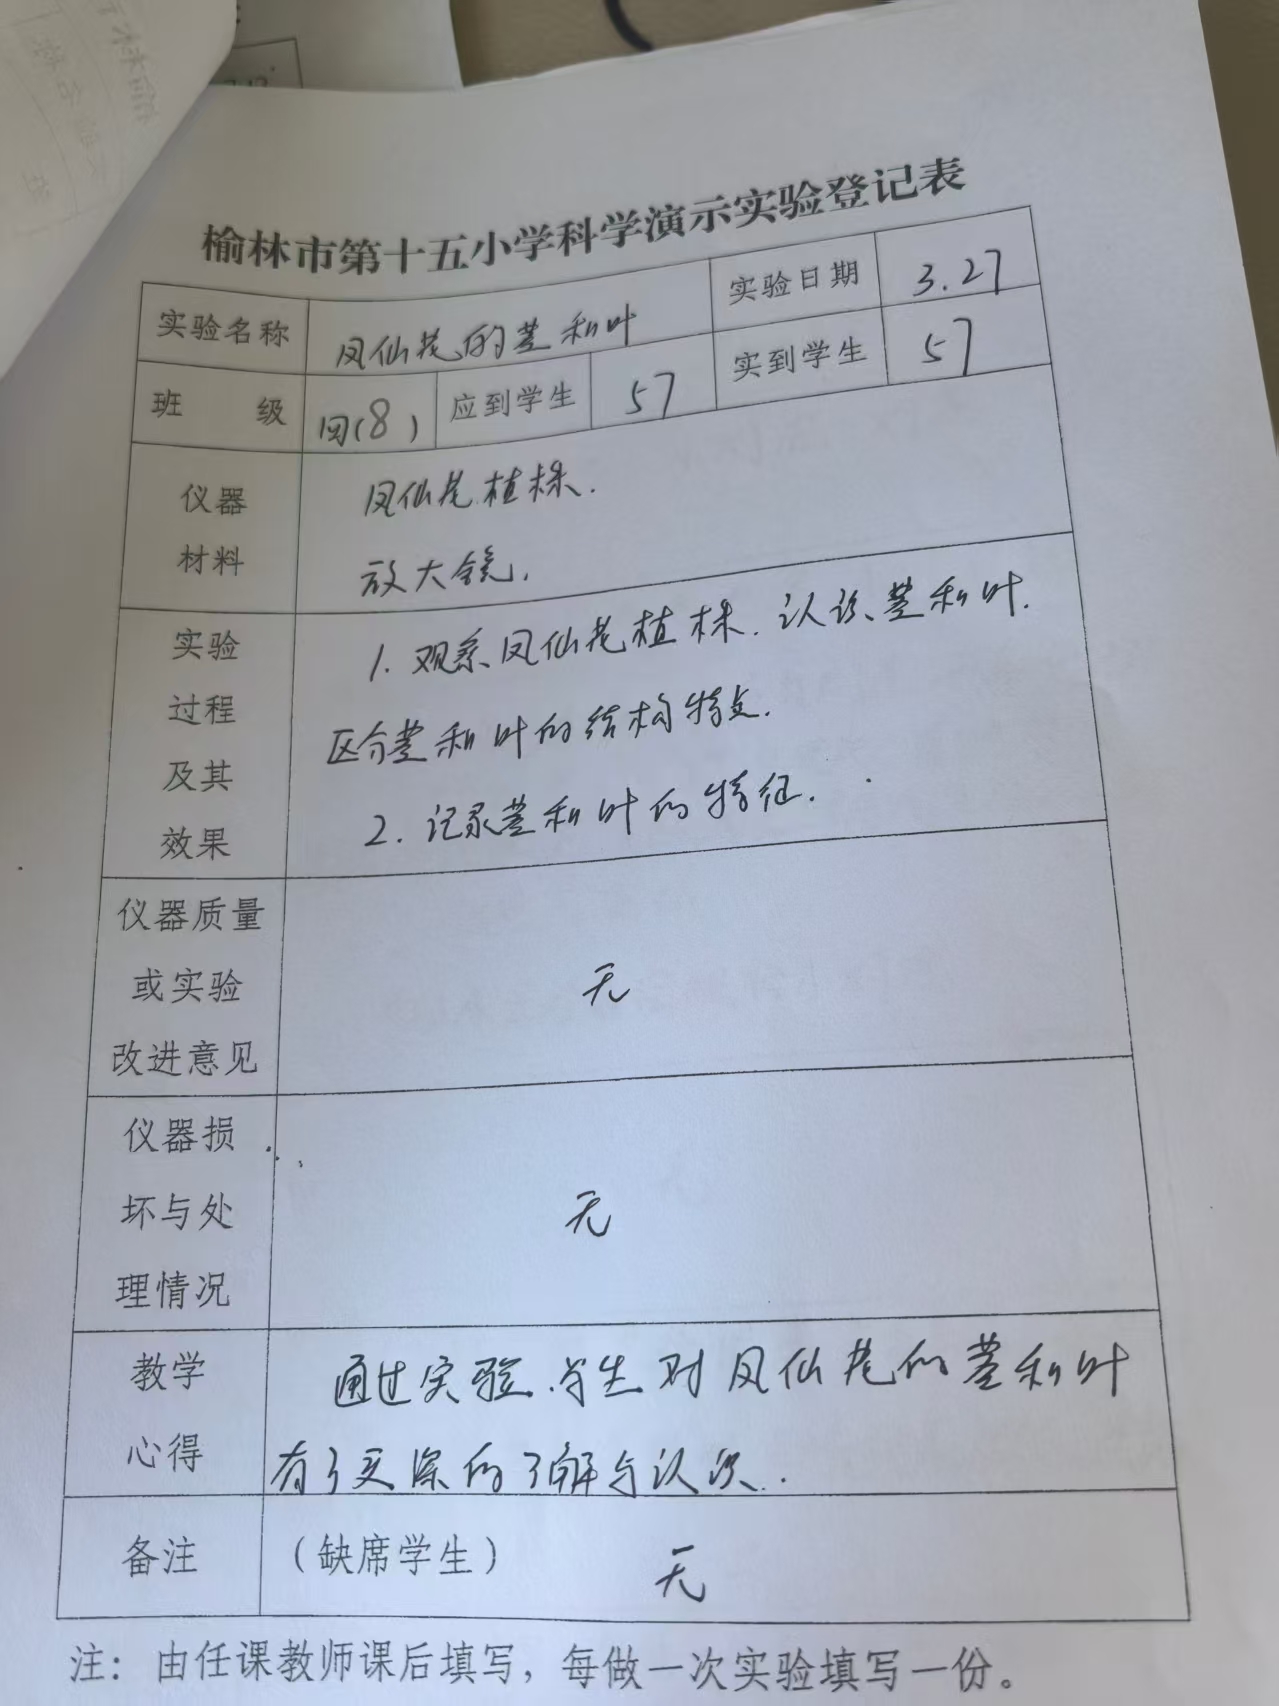 榆林市第十五小学科学演示实验登记表
实验名称 凤仙花的茎和叶 实验日期 3.27
班 级 四(8) 应到学生 57 实到学生 57
仪器 凤仙花植株.
材料 放大镜.
实验 1. 观察凤仙花植株. 认识茎和叶.
过程 区分茎和叶的结构特点.
及其 2. 记录茎和叶的特征.
效果
仪器质量
或实验 无
改进意见
仪器损
坏与处 无
理情况
教学 通过实验.学生对凤仙花的茎和叶
心得 有了更深的了解与认识.
备注 (缺席学生) 无
注：由任课教师课后填写，每做一次实验填写一份。